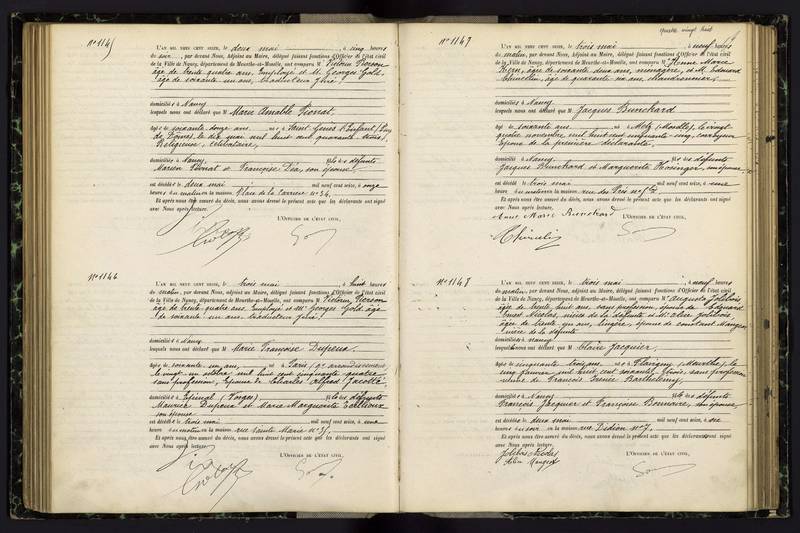 N° 1145
L'AN MIL NEUF CENT SEIZE, le deux mai, à cinq heures
du soir, par devant Nous, Adjoint au Maire, délégué faisant fonctions d'Officier de l'état civil
de la Ville de Nancy, département de Meurthe-et-Moselle, ont comparu M Victorin Pierson
âgé de trente quatre ans, Employé et M. Georges Gold,
âgé de soixante un ans, traducteur juré.
domiciliés à Nancy
lesquels nous ont déclaré que M Marie Amable
âgée de soixante douze ans, née à Saint Genès l'Enfant (Puy
de Dôme), le six mai mil huit cent quarante trois,
Religieuse, célibataire,
domiciliée à Nancy, fille des défunts
Marien et Françoise, son épouse
est décédée le deux mai mil neuf cent seize, à onze
heures du matin en la maison Place de la Carrière n° 34.
Et après nous être assuré du décès, nous avons dressé le présent acte que les déclarants ont signé
avec Nous après lecture.
L'OFFICIER DE L'ÉTAT CIVIL,
N° 1146
L'AN MIL NEUF CENT SEIZE, le trois mai, à huit heures
du matin, par devant Nous, Adjoint au Maire, délégué faisant fonctions d'Officier de l'état civil
de la Ville de Nancy, département de Meurthe-et-Moselle, ont comparu M Victorin Pierson
âgé de trente quatre ans, Employé et M. Georges Gold, âgé
de soixante un ans, traducteur juré.
domiciliés à Nancy
lesquels nous ont déclaré que M Marie Françoise Dupeux
âgée de soixante un ans, née à Paris, arrondissement
le vingt un mil huit cent cinquante quatre
sans profession, épouse de Charles Alfred Jacotté.
domiciliée à Epinal (Vosges) fille des défunts
Maurice Dupeux et Marie Marguerite
son épouse
est décédée le trois mai mil neuf cent seize, à une
heure du matin en la maison rue Sainte Marie n° 35.
Et après nous être assuré du décès, nous avons dressé le présent acte que les déclarants ont signé
avec Nous après lecture.
L'OFFICIER DE L'ÉTAT CIVIL,
Quatre vingt huit
N° 1147
L'AN MIL NEUF CENT SEIZE, le trois mai, à neuf heures
du matin, par devant Nous, Adjoint au Maire, délégué faisant fonctions d'Officier de l'état civil
de la Ville de Nancy, département de Meurthe-et-Moselle, ont comparu M Anne Marie
âgée de soixante deux ans, ménagère, et M. Edmond
âgé de quarante un ans,
domiciliés à Nancy
lesquels nous ont déclaré que M Jacques Bunchard
âgé de soixante ans, né à Metz (Moselle), le vingt
quatre novembre, mil huit cent cinquante cinq, corroyeur
époux de la première déclarante.
domicilié à Nancy, fils des défunts
Jacques Bunchard et Marguerite, son épouse
est décédé le trois mai mil neuf cent seize, à une
heure du matin en la maison rue des
Et après nous être assuré du décès, nous avons dressé le présent acte que les déclarants ont signé
avec Nous après lecture.
Anne Marie Bunchard
L'OFFICIER DE L'ÉTAT CIVIL,
N° 1148
L'AN MIL NEUF CENT SEIZE, le trois mai, à neuf heures
du matin, par devant Nous, Adjoint au Maire, délégué faisant fonctions d'Officier de l'état civil
de la Ville de Nancy, département de Meurthe-et-Moselle, ont comparu M Augusta Jolibois
âgée de trente huit ans, sans profession, épouse de Edouard
Ernest Nicolas, nièce de la défunte et Jolibois
âgée de trente un ans, lingère, épouse de Constant Mangeot
nièce de la défunte
domiciliés à Nancy
lesquels nous ont déclaré que M Claire Jacquier
âgée de cinquante trois ans, née à Flavigny (Meurthe), le
cinq janvier mil huit cent soixante trois, sans profession
veuve de François Barthélemy.
domiciliée à Nancy, fille des défunts
François Jacquier et Françoise, son épouse
est décédée le deux mai mil neuf cent seize, à six
heures du soir en la maison rue Didion n° 7.
Et après nous être assuré du décès, nous avons dressé le présent acte que les déclarants ont signé
avec Nous après lecture.
Jolibois Nicolas
Mangeot
L'OFFICIER DE L'ÉTAT CIVIL,